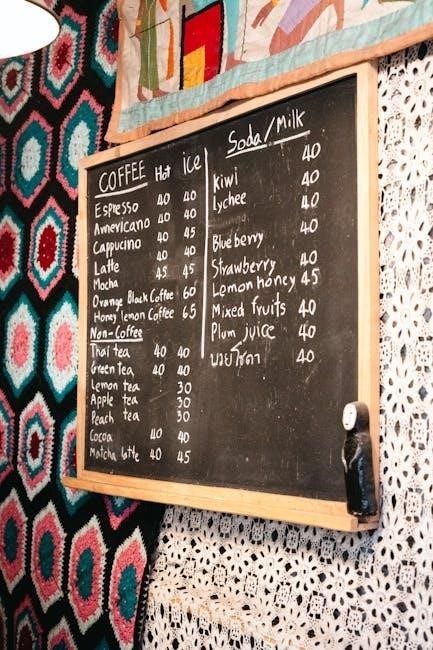 COFFEE Hot ice
Espresso 40 40
Amnericano 40 40
Cappucino 40 45
Latte 40 45
Mocha 45 45
Orange Black Coffee 60
Honey lemon Coffee 65
Non-Coffee
Thai tea 40 40
Green tea 40 40
Lemon tea 30
Apple tea 30
Peach tea 30
Cocoa 40 40
Matcha latte 40 45
Soda/Milk
40
Kiwi 40
Lychee 40
40
Blueberry
Strawberry 40
Lemon honey 45
Mixed fruits 40
Plum juice 40
บ๊วยโซดา 40